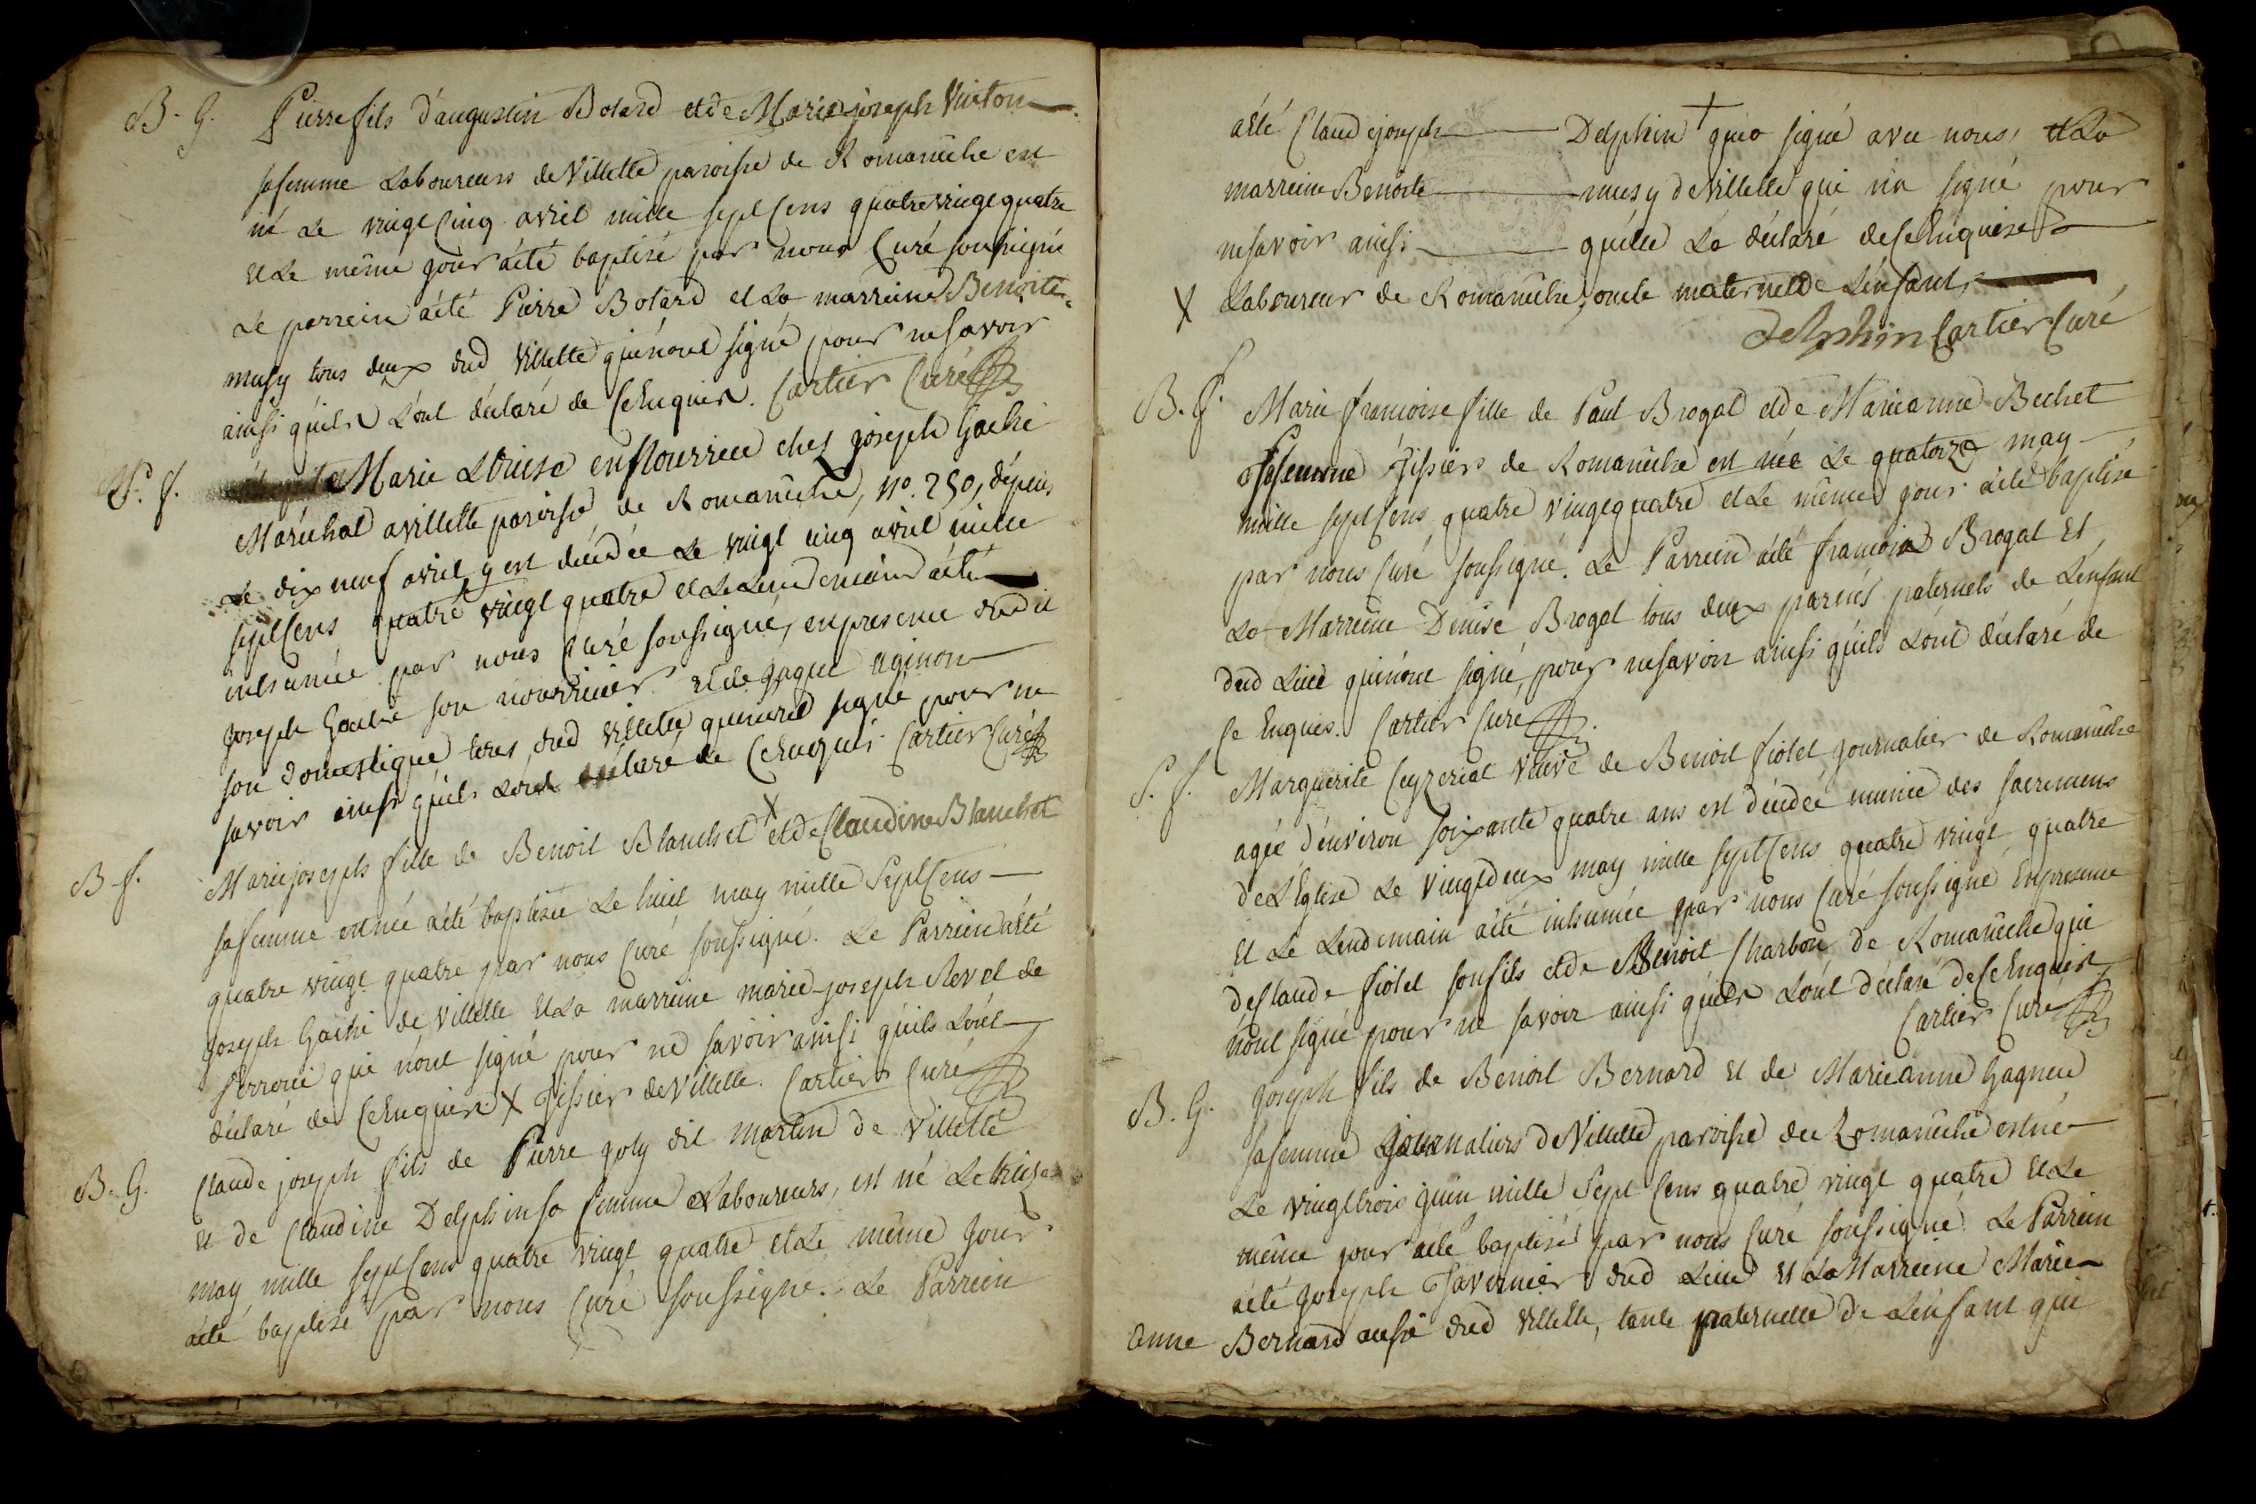 B. G. Pierre fils d'augustin Botard et de Marie joseph Vuiton
sa femme Laboureurs de Villette paroisse de Romaneche est
né Le vingt Cinq avril mille sept Cens quatre vingt quatre
et Le même jour a été baptisé par nous Curé soussigné
Le parrein a été Pierre Botard et La marreine Benoite
musy tous deux dud Villette qui n'ont signé pour ne savoir
ainsi qu'ils L'ont déclaré de Ce Enquis. Cartier Curé
S. f. Marie Louise en Nourrice chez joseph Gaché
Maréchal a villette paroisse de Romaneche, N°. 250, dépuis
Le dix neuf avril y est décédée Le vingt cinq avril mille
sept Cens quatre vingt quatre et Le Lendemain a été
inhumée par nous Curé soussigné, en presence dudit
joseph Gaché son nourricier et de jaque
son domestique tous dud Villette qui n'ont signé pour ne
savoir ainsi qu'ils L'ont déclaré de Ce Enquis. Cartier Curé
B. f. Marie joseph fille de Benoit Blanchet X et de Claudine Blanchet
sa femme est née a été baptisée Le huit may mille Sept Cens
quatre vingt quatre par nous Curé soussigné. Le Parrein a été
joseph Gaché de Villette et La marreine marie joseph Revel de
qui n'ont signé pour ne savoir ainsi qu'ils L'ont
déclaré de Ce Enquis. X Tissier de Villette. Cartier Curé
B. G. Claude joseph fils de Pierre joly dit martin de Villette
et de Claudine Delphin sa femme Laboureurs, est né Le treize
may mille sept Cens quatre vingt quatre et Le même jour
a été baptisé par nous Curé soussigné. Le Parrein
a été Claude joseph Delphin † qui a signé avec nous, et La
marreine Benoite musy de Villette qui n'a signé pour
ne savoir ainsi qu'elle L'a déclaré de Ce Enquise
X Laboureur de Romaneche, oncle maternel de L'enfant,
delphin Cartier Curé
B. f. Marie francoise fille de Paul Brogat et de Marie anne Bechet
sa femme Tissiers de Romaneche est née Le quatorze may
mille sept Cens quatre vingt quatre et Le même jour a été baptisé
par nous Curé soussigné. Le Parrein a été francois Brogat et
La Marreine Denise Brogat tous deux parens paternels de L'enfant
dud Lieu qui n'ont signé, pour ne savoir ainsi qu'ils L'ont déclaré de
Ce Enquis. Cartier Curé
S. f. Marguerite Ceyzeriat veuve de Benoit fiolet journalier de Romaneche
agée d'environ soixante quatre ans est décédée munie des sacremens
de L'Eglise Le vingt deux may mille sept Cens quatre vingt quatre
et Le Lendemain a été inhumée par nous Curé soussigné En presence
de Claude fiolet son fils et de Benoit Charbon de Romaneche qui
n'ont signé pour ne savoir ainsi qu'ils L'ont déclaré de Ce Enquis
Cartier Curé
B. G. joseph fils de Benoit Bernard et de Marie anne Gagneu
sa femme journaliers de Villette paroisse de Romaneche est né
Le vingt trois juin mille Sept Cens quatre vingt quatre et Le
même jour a été baptisé par nous Curé soussigné. Le Parrein
a été joseph Tavernier dud Lieu et La Marreine Marie
anne Bernard aussi dud Villette, tante paternelle de L'enfant qui